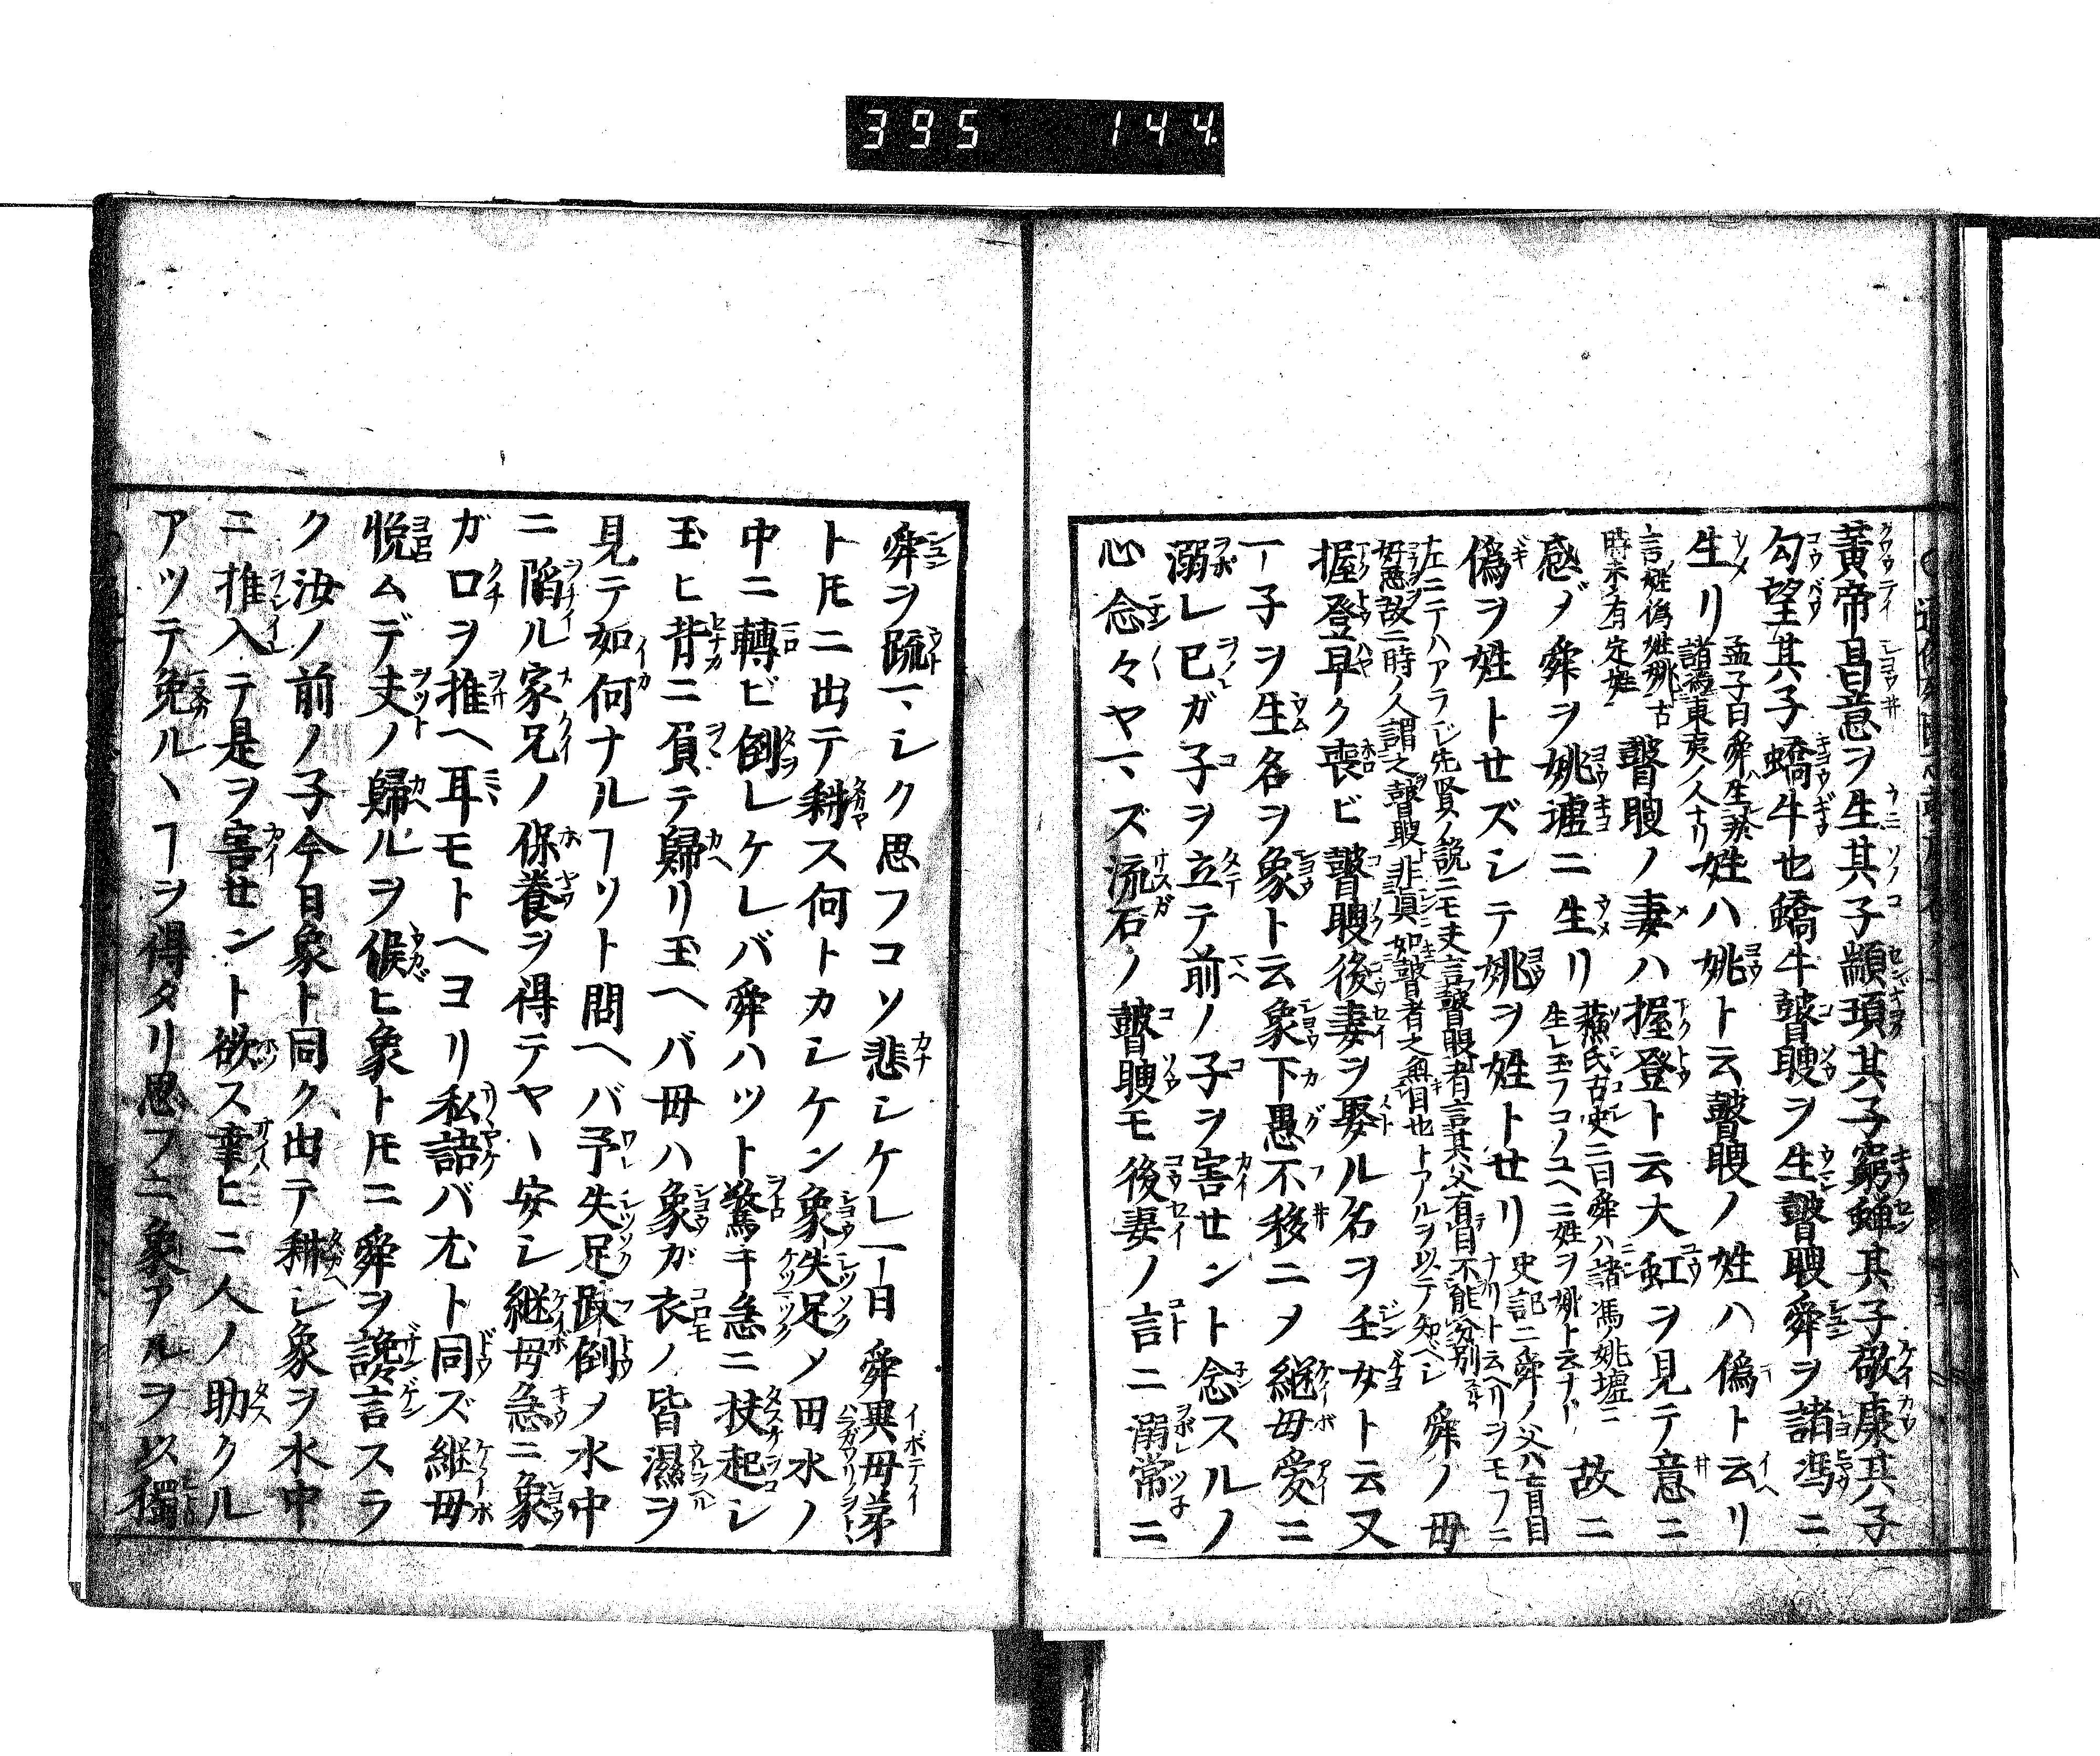 395 144
黄帝昌意ヲ生其子顓頊其子窮蝉其子敬康其子
勾望其子蟜牛也蟜牛瞽瞍ヲ生瞽瞍舜ヲ諸馮ニ
生リ孟子曰舜ハ生於
諸馮東夷ノ人ナリ姓ハ姚ト云瞽瞍ノ姓ハ偽ト云リ
言姓偽姓姚古
時未有定姓
瞽瞍ノ妻ハ握登ト云大虹ヲ見テ意ニ
感ジ舜ヲ姚墟ニ生リ蘇氏古史ニ曰舜ハ諸馮ノ姚墟ニ
生レ玉フコノユヘニ姓ヲ姚ト云ナト故ニ
偽ヲ姓トせズシテ姚ヲ姓トせリ史記ニ舜ノ父ハ盲目
ナリト云ヘリヲモフニ
左ニテハアラじ先賢ノ説ニモ史言瞽瞍者言其父有目不能分別
好悪故ニ時ノ人謂之瞽瞍非真如瞽者之無目也トアルヲ以テ知ベシ
舜ノ母
握登早ク喪ビ瞽瞍後妻ヲ娶ル名ヲ壬女ト云又
一子ヲ生名ヲ象ト云象下愚不移ニメ継母愛ニ
溺レ已ガ子ヲ立テ前ノ子ヲ害せント念スルノ
心念々ヤマズ流石ノ瞽瞍モ後妻ノ言ニ溺常ニ
舜ヲ疏マシク思フコソ悲シケレ一日舜與母弟
トモニ出テ耕ス何トカシケン象失足ノ田水ノ
中ニ轉ビ倒レケレバ舜ハツト驚キ急ニ扶起シ
玉ヒ背ニ負テ歸リ玉ヘバ母ハ象ガ衣ノ皆濕ヲ
見テ如何ナルヿソト問ヘバ予失足跌倒メ水中
ニ陷ル家兄ノ保養ヲ得テヤヽ安シ継母急ニ象
ガ口ヲ推ヘ耳モトヘヨリ私語バ尤ト同ズ継母
悦ムデ丈ノ歸ルヲ候ヒ象トモニ舜ヲ讒言スラ
ク汝ノ前ノ子今日象ト同ク出テ耕シ象ヲ水中
ニ推入テ是ヲ害せント欲ス幸ヒニ人ノ助クル
アツテ免ルヽヿヲ得タリ思フニ象アルヲ以獨